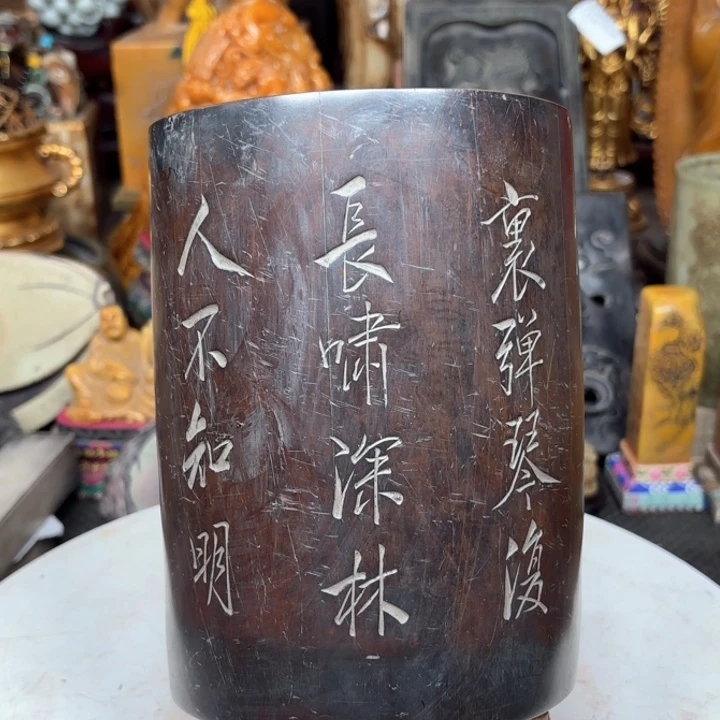 裏弹琴復
長嘯深林
人不知明